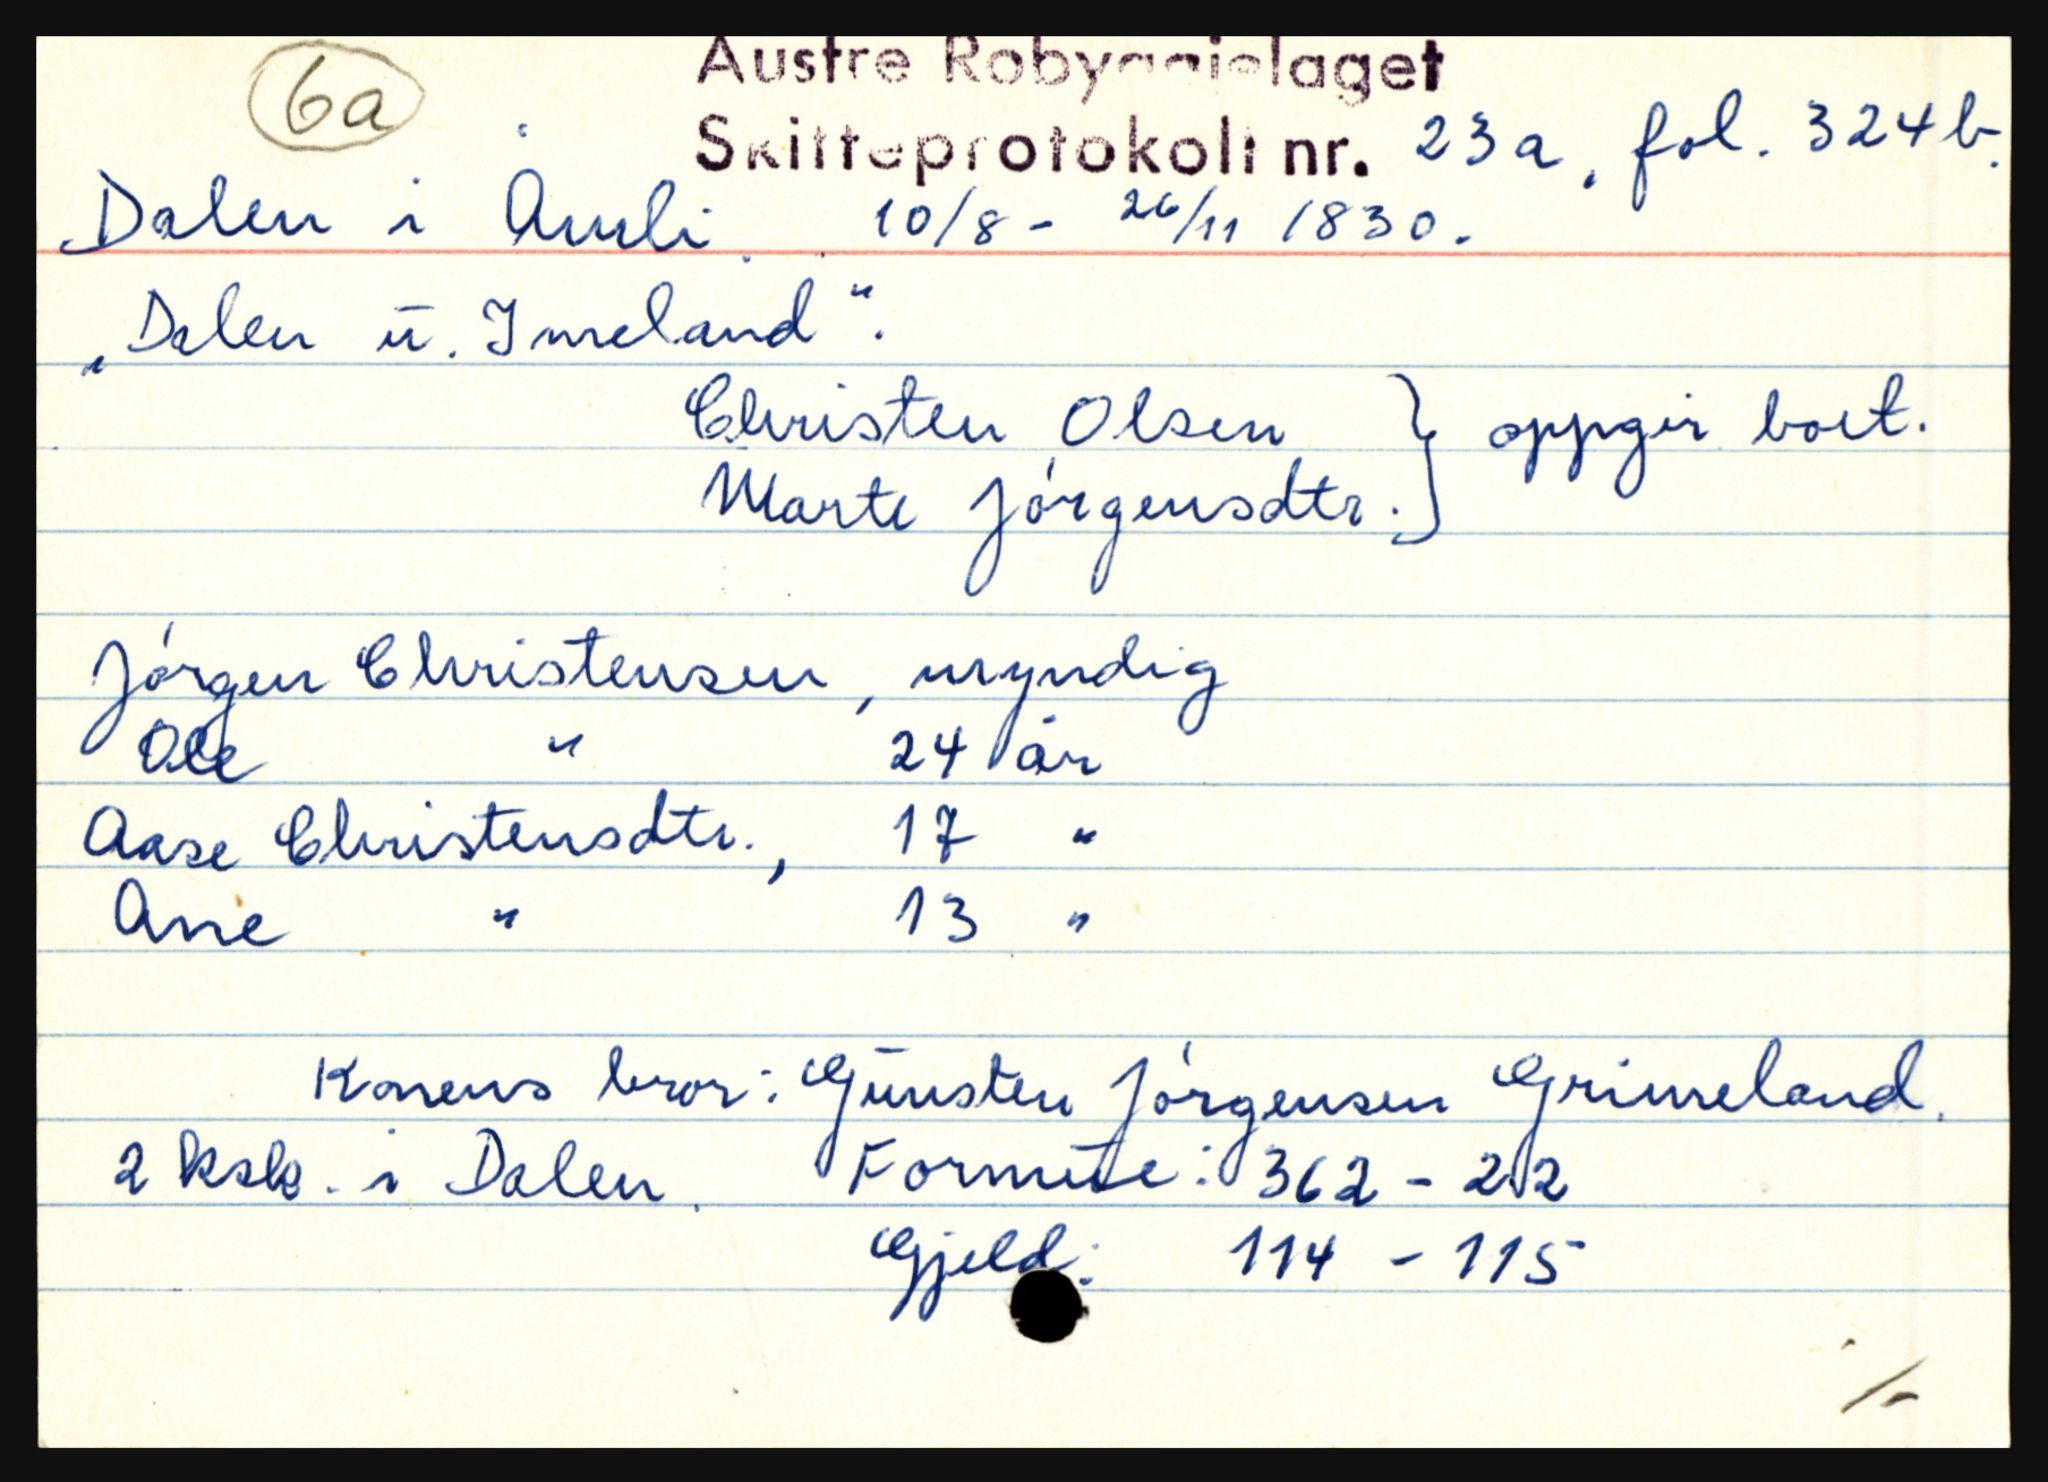 6a
Austre Robyggjelaget
Skifteprotokoll nr. 23a, fol. 324b.
Dalen i Åmli 10/8 - 26/11 1830.
„Dalen u. Imeland“.
Christen Olsen } oppgir boet.
Marte Jörgensdtr. }
Jörgen Christensen, myndig
Ole " 24 år
Aase Christensdtr., 17 "
Ane " 13 "
Konens bror: Gunsten Jörgensen Grimeland.
2 ksk. i Dalen. Formue: 362 - 2.2
Gjeld: 114 - 115